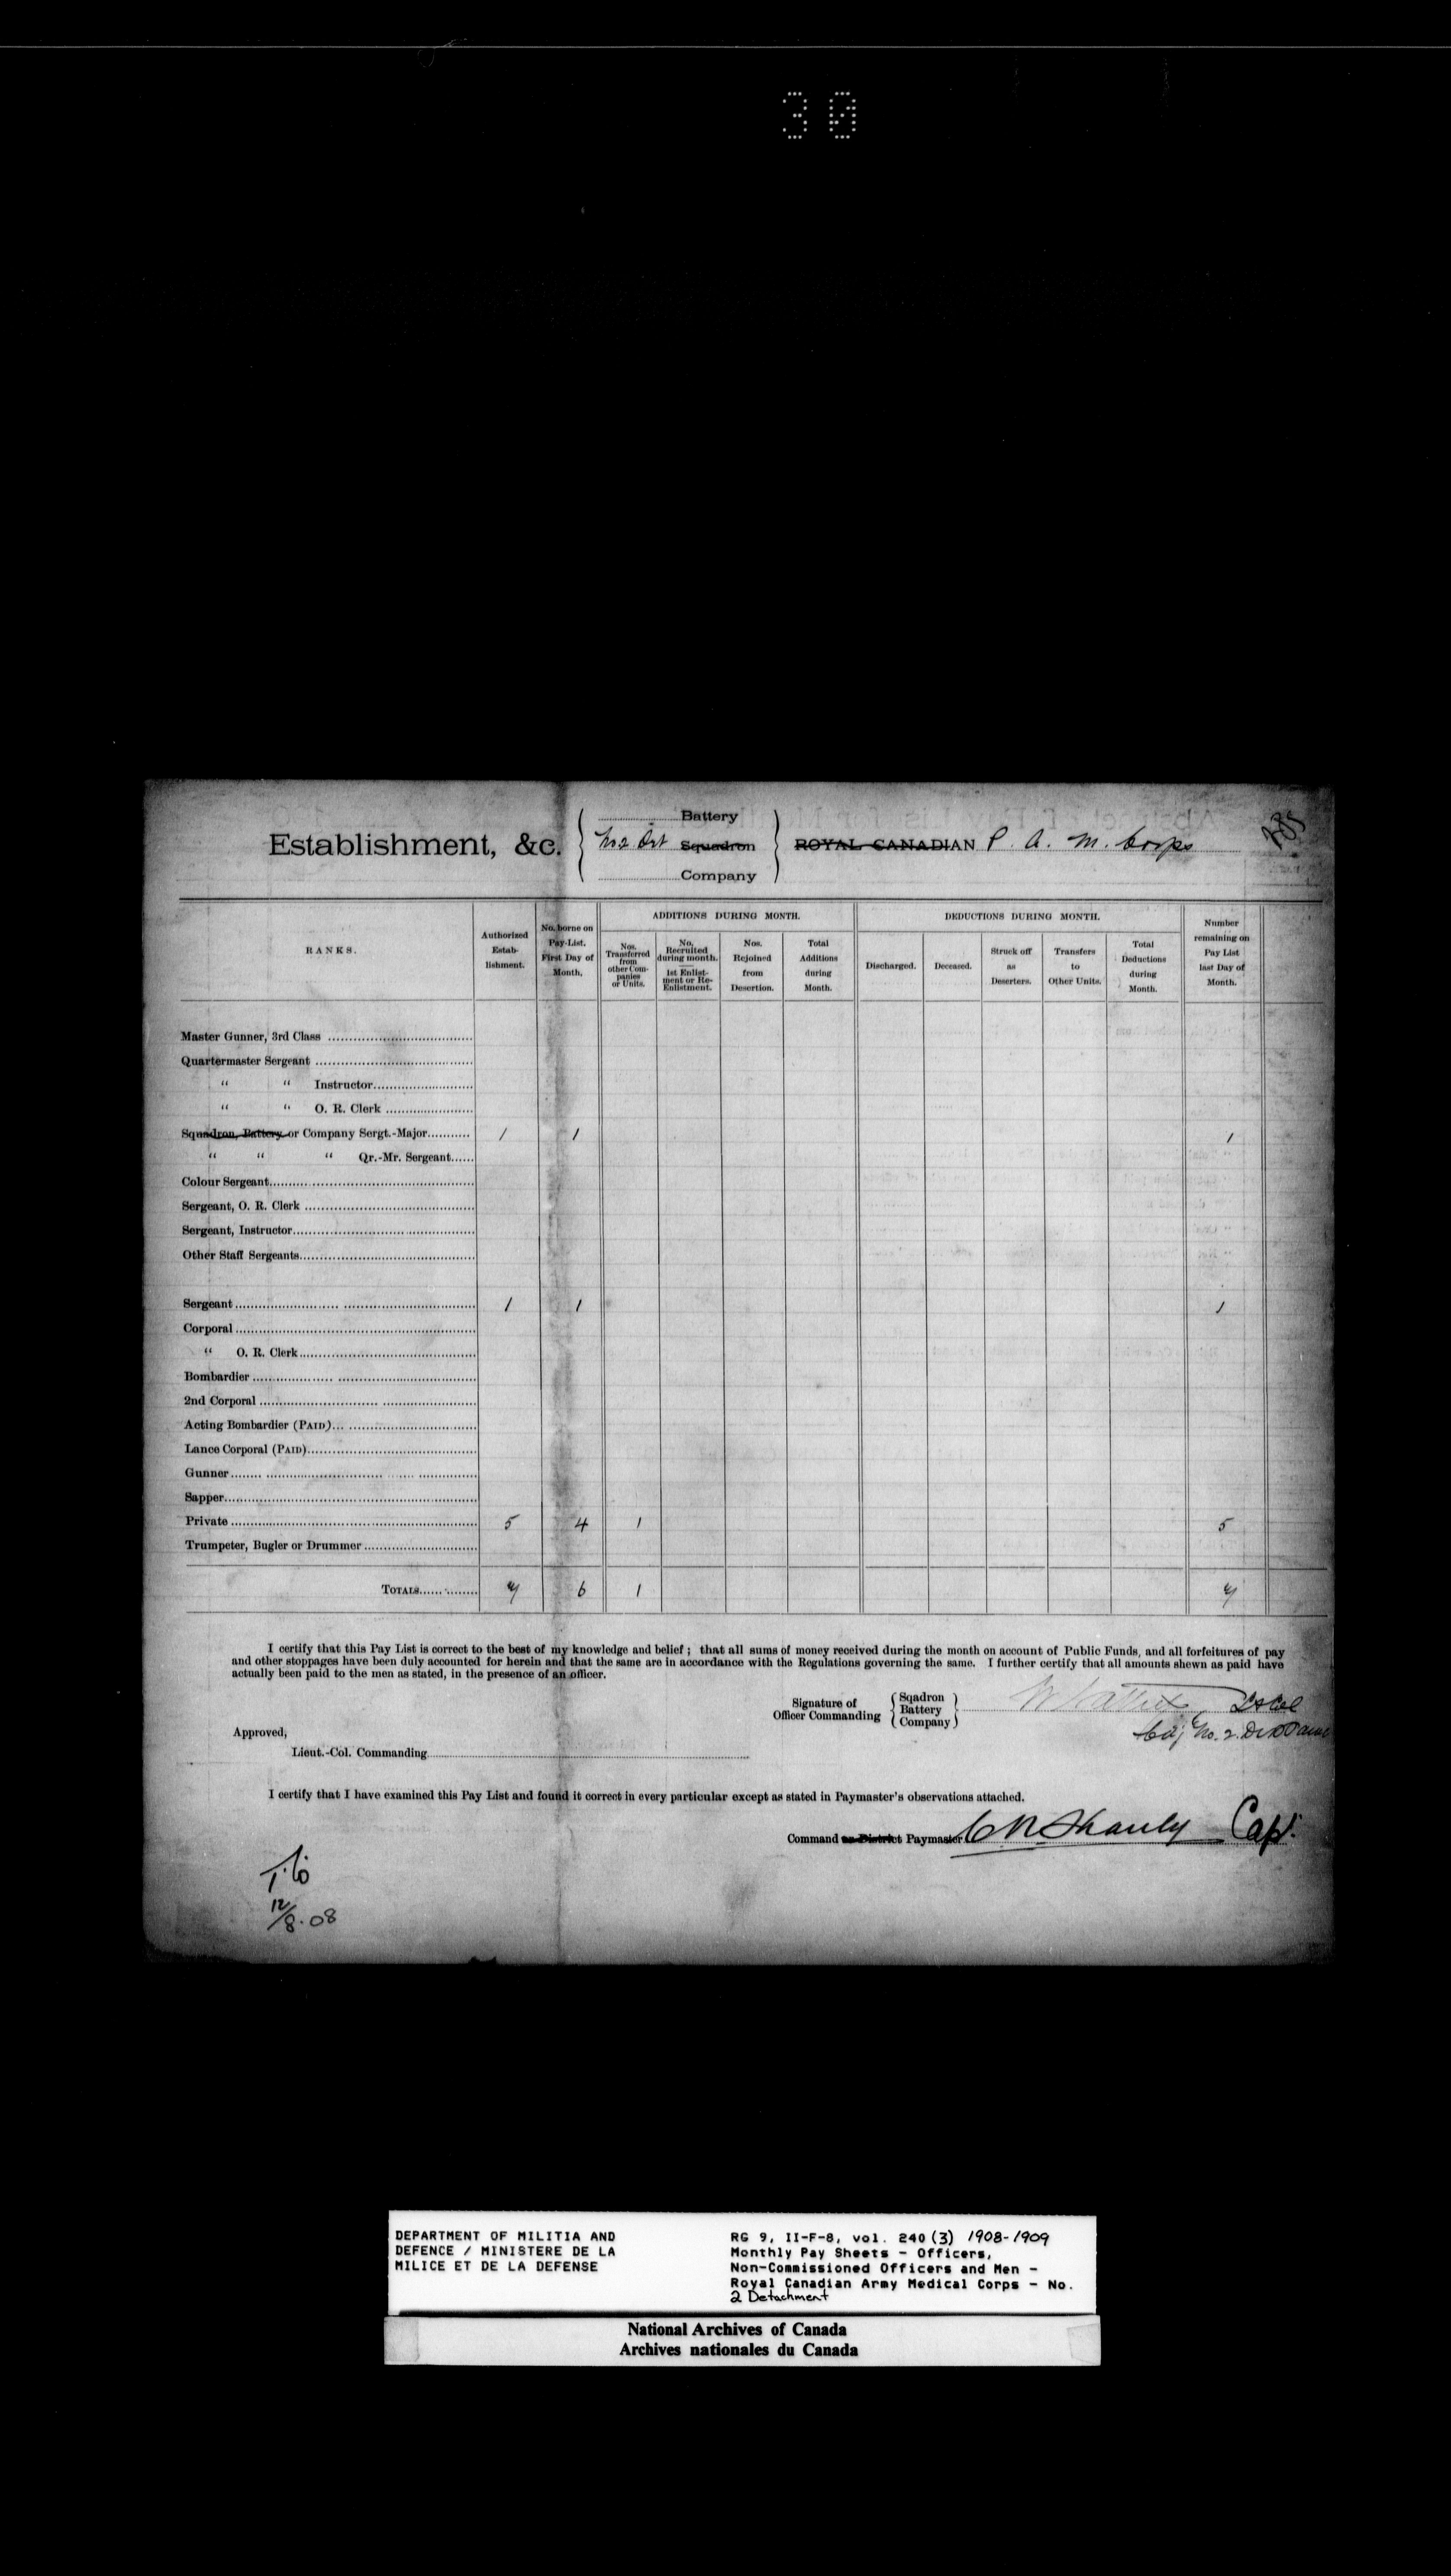 30
Battery
Establishment, &c. No 2 Det Squadron ROYAL CANADIAN P. A. M. Corps
Company
RANKS.
Authorized Estab- lishment.
No. borne on Pay-List, First Day of Month.
ADDITIONS DURING MONTH.
Nos. Transferred from other Com- panies or Units.
No. Recruited during month. 1st Enlist- ment or Re- Enlistment.
Nos. Rejoined from Desertion.
Total Additions during Month.
DEDUCTIONS DURING MONTH.
Discharged.
Deceased.
Struck off as Deserters.
Transfers to Other Units.
Total Deductions during Month.
Number remaining on Pay List last Day of Month.
Master Gunner, 3rd Class
Quartermaster Sergeant
“ “ Instructor
“ “ O. R. Clerk
Squadron, Battery or Company Sergt.-Major 1 1 1
“ “ “ Qr.-Mr. Sergeant
Colour Sergeant
Sergeant, O. R. Clerk
Sergeant, Instructor
Other Staff Sergeants
Sergeant 1 1 1
Corporal
“ O. R. Clerk
Bombardier
2nd Corporal
Acting Bombardier (PAID)
Lance Corporal (PAID)
Gunner
Sapper
Private 5 4 1 5
Trumpeter, Bugler or Drummer
TOTALS 7 6 1 7
I certify that this Pay List is correct to the best of my knowledge and belief ; that all sums of money received during the month on account of Public Funds, and all forfeitures of pay
and other stoppages have been duly accounted for herein and that the same are in accordance with the Regulations governing the same. I further certify that all amounts shewn as paid have
actually been paid to the men as stated, in the presence of an officer.
Signature of Officer Commanding
Sqadron
Battery
Company
Lt Col
No. 2. Det
Approved,
Lieut.-Col. Commanding
I certify that I have examined this Pay List and found it correct in every particular except as stated in Paymaster's observations attached.
Command or District Paymaster C N Shanly Capt.
12/8.08
DEPARTMENT OF MILITIA AND
DEFENCE / MINISTERE DE LA
MILICE ET DE LA DEFENSE
RG 9, II-F-8, vol. 240 (3) 1908-1909
Monthly Pay Sheets - Officers,
Non-Commissioned Officers and Men -
Royal Canadian Army Medical Corps - No.
2 Detachment
National Archives of Canada
Archives nationales du Canada